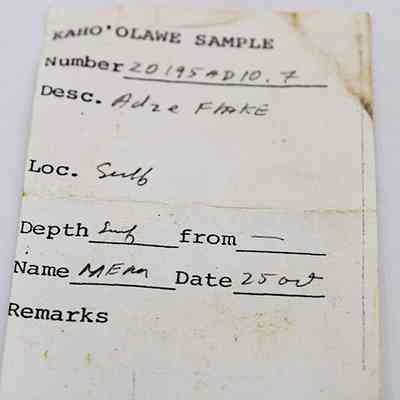 KAHO'OLAWE SAMPLE
Number 20195AD10.7
Desc. Adze FLAKE
Loc. Surf
Depth Surf from —
Name MEM Date 25 Oct
Remarks